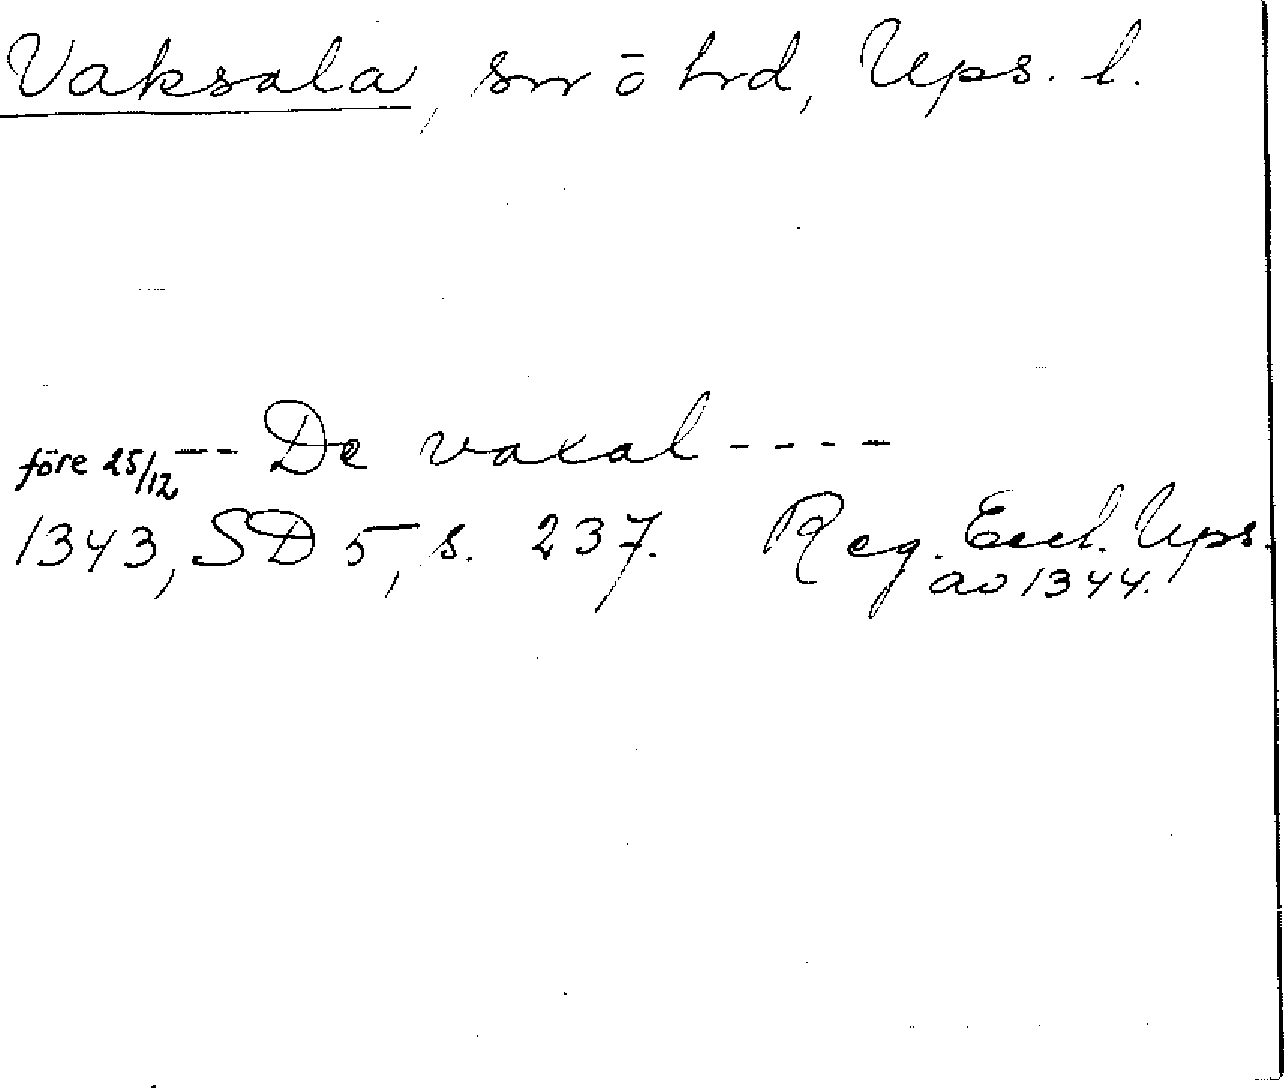 Vaksala, sn o hd, Ups. l.
före 25/12 -- De vaxal ----
1343, SD 5, s. 237. Reg. Eccl. Ups.
av 1344.